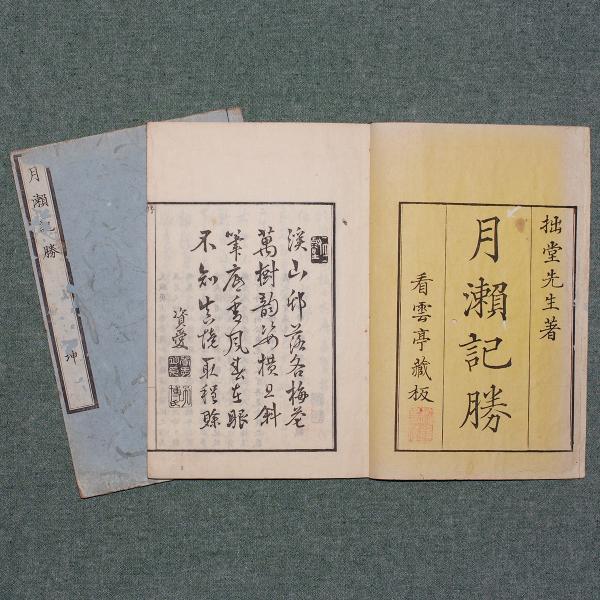 拙堂先生著
月瀨記勝
看雲亭藏板
溪山邨落各梅花
萬樹韵姿横且斜
筆底香風春在眼
不知真境取程賒
資愛
月瀨記勝 坤